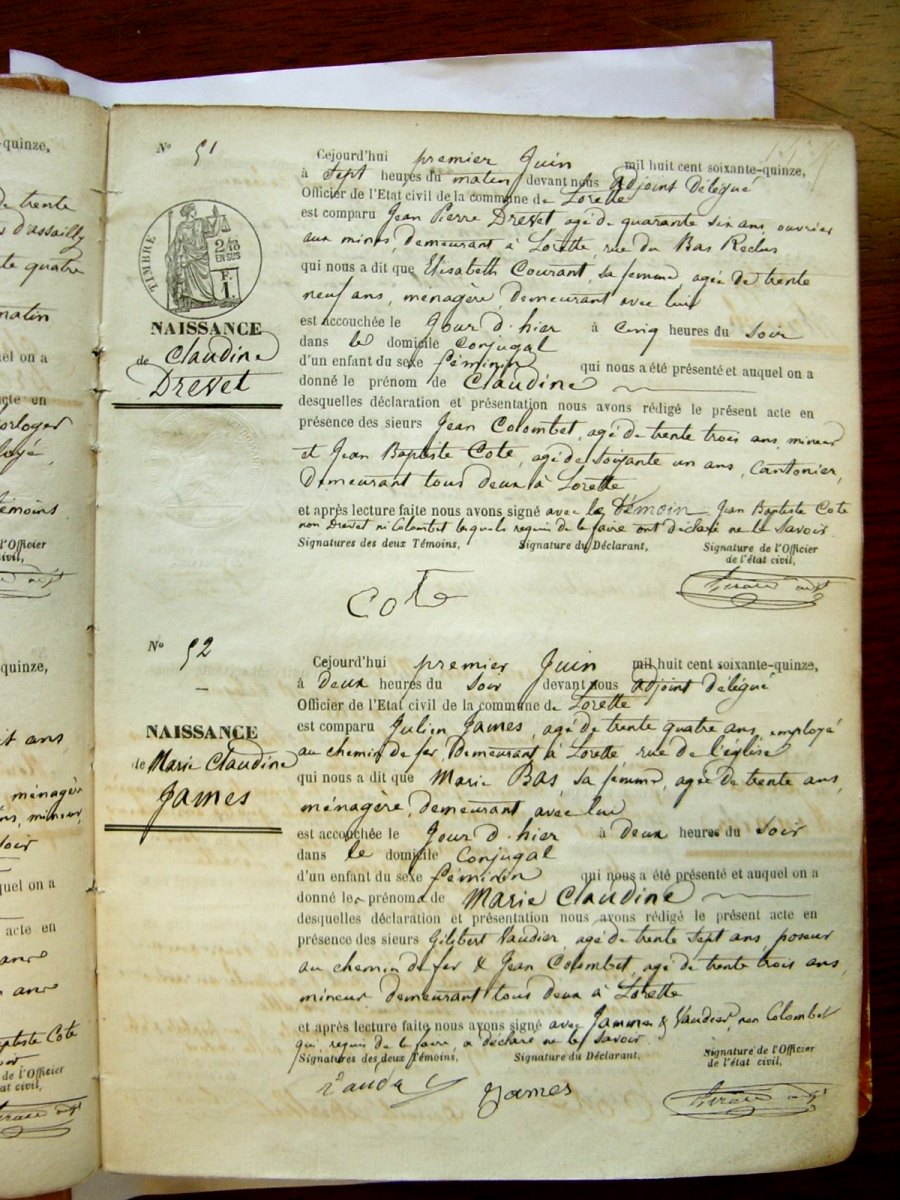 quinze,
de trente
d'assailly
te quatre
matin
quel on a
acte en
horloger
loyé,
témoins
l'Officier
civil,
quinze,
t ans
ménagère
ns, mineur,
soir
quel on a
acte en
Baptiste Cote
de l'Officier
at civil,
N° 51
TIMBRE
2/10
EN SUS
F.
1.
NAISSANCE
de Claudine
Drevet
Cejourd'hui premier Juin mil huit cent soixante-quinze,
à sept heures du matin devant nous Adjoint délégué
Officier de l'Etat civil de la commune de Lorette
est comparu Jean Pierre Drevet agé de quarante six ans, ouvrier
aux mines, demeurant à Lorette rue du Bas Reclus
qui nous a dit que Elisabeth Courant, sa femme, agée de trente
neuf ans, ménagère, demeurant avec lui
est accouchée le Jour d'hier à cinq heures du soir
dans le domicile conjugal
d'un enfant du sexe féminin qui nous a été présenté et auquel on a
donné le prénom de Claudine
desquelles déclaration et présentation nous avons rédigé le présent acte en
présence des sieurs Jean Colombet, agé de trente trois ans, mineur
et Jean Baptiste Cote, agé de soixante un ans, cantonier,
demeurant tous deux à Lorette
et après lecture faite nous avons signé avec le témoin Jean Baptiste Cote
non Drevet ni Colombet lesquels requis de le faire ont déclaré ne le savoir.
Signatures des deux Témoins, Signature du Déclarant, Signature de l'Officier
de l'état civil,
Cote
N° 52
NAISSANCE
de Marie Claudine
James
Cejourd'hui premier Juin mil huit cent soixante-quinze,
à deux heures du soir devant nous Adjoint délégué
Officier de l'Etat civil de la commune de Lorette
est comparu Julien James, agé de trente quatre ans, employé
au chemin de fer, demeurant à Lorette rue de l'église
qui nous a dit que Marie Bas sa femme, agée de trente ans,
ménagère, demeurant avec lui
est accouchée le Jour d'hier à deux heures du soir
dans le domicile conjugal
d'un enfant du sexe féminin qui nous a été présenté et auquel on a
donné les prénoms de Marie Claudine
desquelles déclaration et présentation nous avons rédigé le présent acte en
présence des sieurs Gilibert Vaudier, agé de trente sept ans, poseur
au chemin de fer & Jean Colombet, agé de trente trois ans,
mineur demeurant tous deux à Lorette
et après lecture faite nous avons signé avec Jammes & Vaudier, non Colombet
qui, requis de le faire, a déclaré ne le savoir.
Signatures des deux Témoins, Signature du Déclarant, Signature de l'Officier
de l'état civil,
James